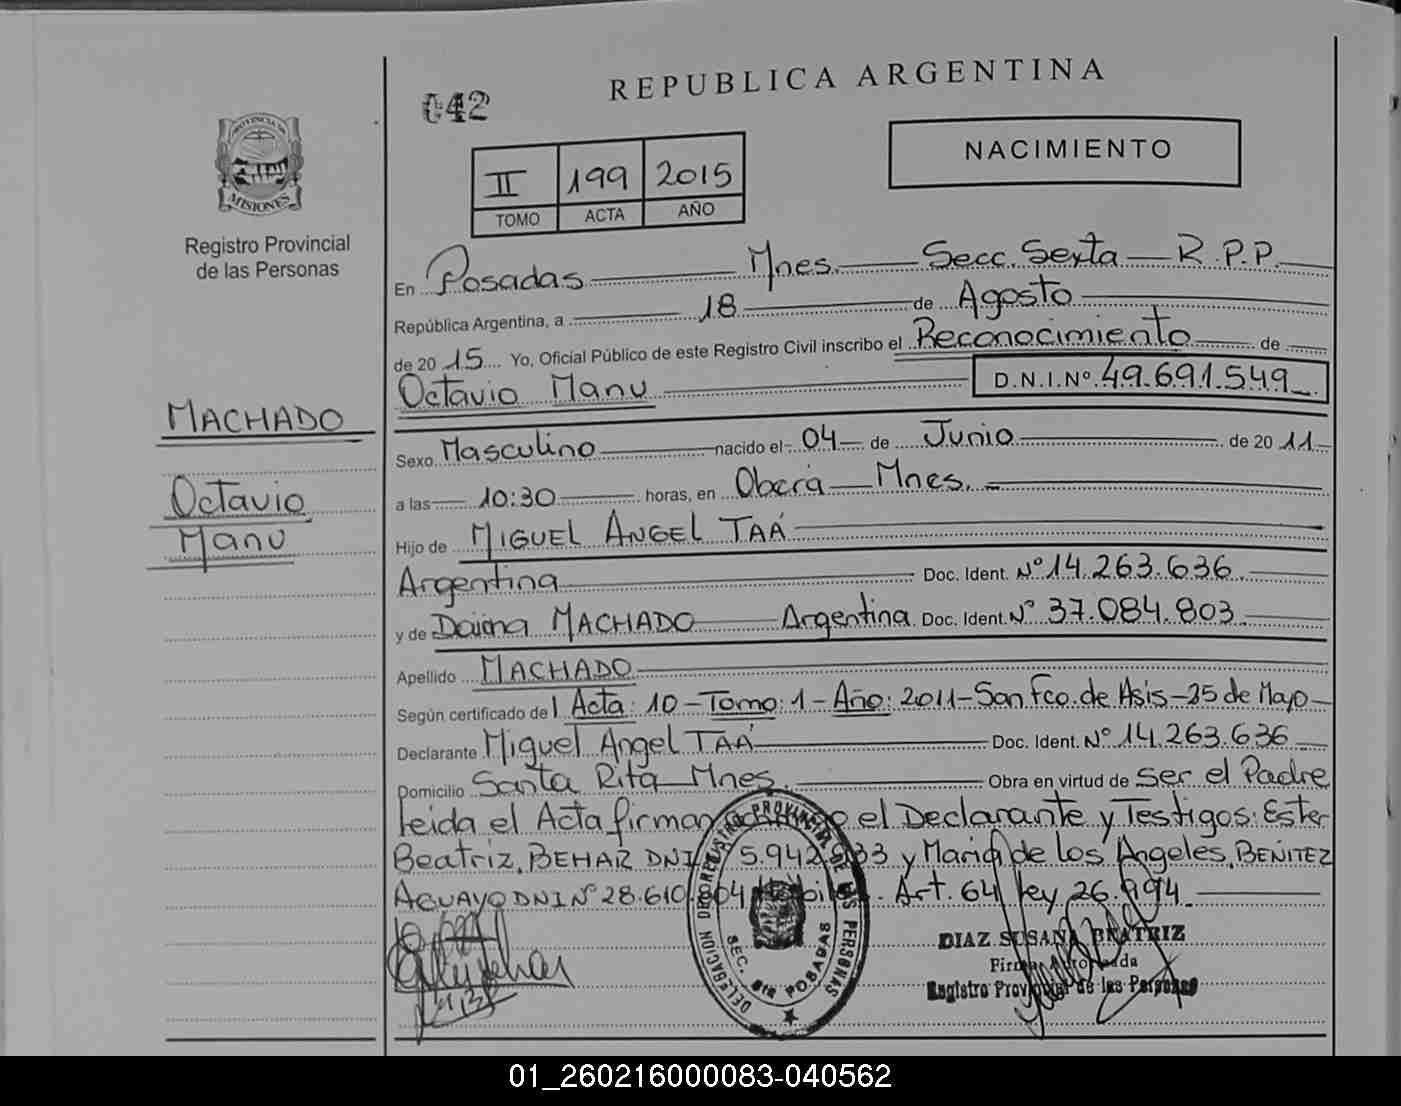 042
REPUBLICA ARGENTINA
NACIMIENTO
II 199 2015
TOMO ACTA AÑO
PROVINCIA DE
MISIONES
Registro Provincial
de las Personas
En Posadas Mnes. Secc. Sexta R.P.P.
República Argentina, a 18 de Agosto
de 20 15 Yo, Oficial Público de este Registro Civil inscribo el Reconocimiento de
Octavio Manu D.N.I.Nº 49.691.549
MACHADO
Octavio
Manu
Sexo Masculino nacido el 04 de Junio de 20 11
a las 10:30 horas, en Oberá Mnes.
Hijo de MIGUEL ÁNGEL TAÁ
Argentina Doc. Ident. Nº 14.263.636
y de Daiana MACHADO Argentina Doc. Ident. Nº 37.084.803
Apellido MACHADO
Según certificado de l Acta: 10 - Tomo: 1 - Año: 2011 - San Fco. de Asis - 25 de Mayo
Declarante Miguel Angel TAÁ Doc. Ident. Nº 14.263.636
Domicilio Santa Rita Mnes. Obra en virtud de ser el Padre
leida el Acta firman el Declarante y Testigos: Ester
Beatriz BEHAR DNI 5.942 33 y Maria de los Angeles BENITEZ
AGUAYO DNI Nº 28.610. 04 Art. 64 ley 26.994
DELEGACION DEL REGISTRO PROVINCIAL DE LAS PERSONAS
SEC. 6ta POSADAS
DIAZ SUSANA BEATRIZ
Firma Autorizada
Registro Provincial de las Personas
01_260216000083-040562